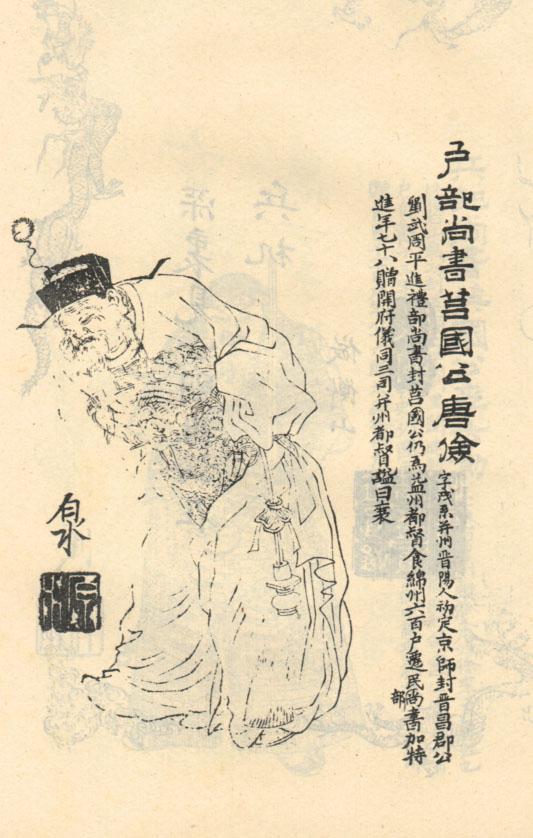 戶部尚書莒國公唐儉
字茂系并州晉陽人初定京師封晉昌郡公
劉武周平進禮部尚書封莒國公仍為益州都督食綿州六百戶遷民部尚書加特
進年七十八贈開府儀同三司并州都督謚曰襄
泉